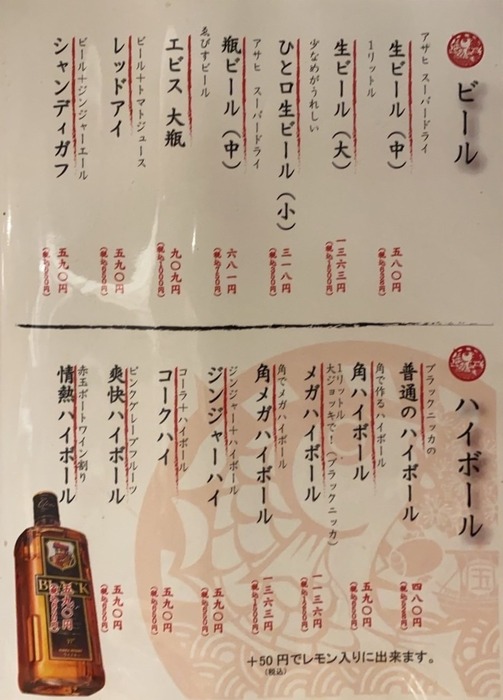 ビール
アサヒ スーパードライ
生ビール（中）
五八〇円
1リットル
生ビール（大）
一三六三円
少なめがうれしい
ひと口生ビール（小）
三一八円
アサヒ スーパードライ
瓶ビール（中）
六八一円
ゑびすビール
エビス 大瓶
九〇九円
ビール＋トマトジュース
レッドアイ
五九〇円
ビール＋ジンジャーエール
シャンディガフ
五九〇円
ハイボール
ブラックニッカの
普通のハイボール
四八〇円
角で作るハイボール
角ハイボール
五九〇円
1リットル
大ジョッキで！（ブラックニッカ）
メガハイボール
一一三六円
角でメガハイボール
角メガハイボール
一三六三円
ジンジャー＋ハイボール
ジンジャーハイ
五九〇円
コーラ＋ハイボール
コークハイ
五九〇円
ピンクグレープフルーツ
爽快ハイボール
五九〇円
赤玉ポートワイン割り
情熱ハイボール
五九〇円
BLACK
＋50円でレモン入りに出来ます。
(税込)